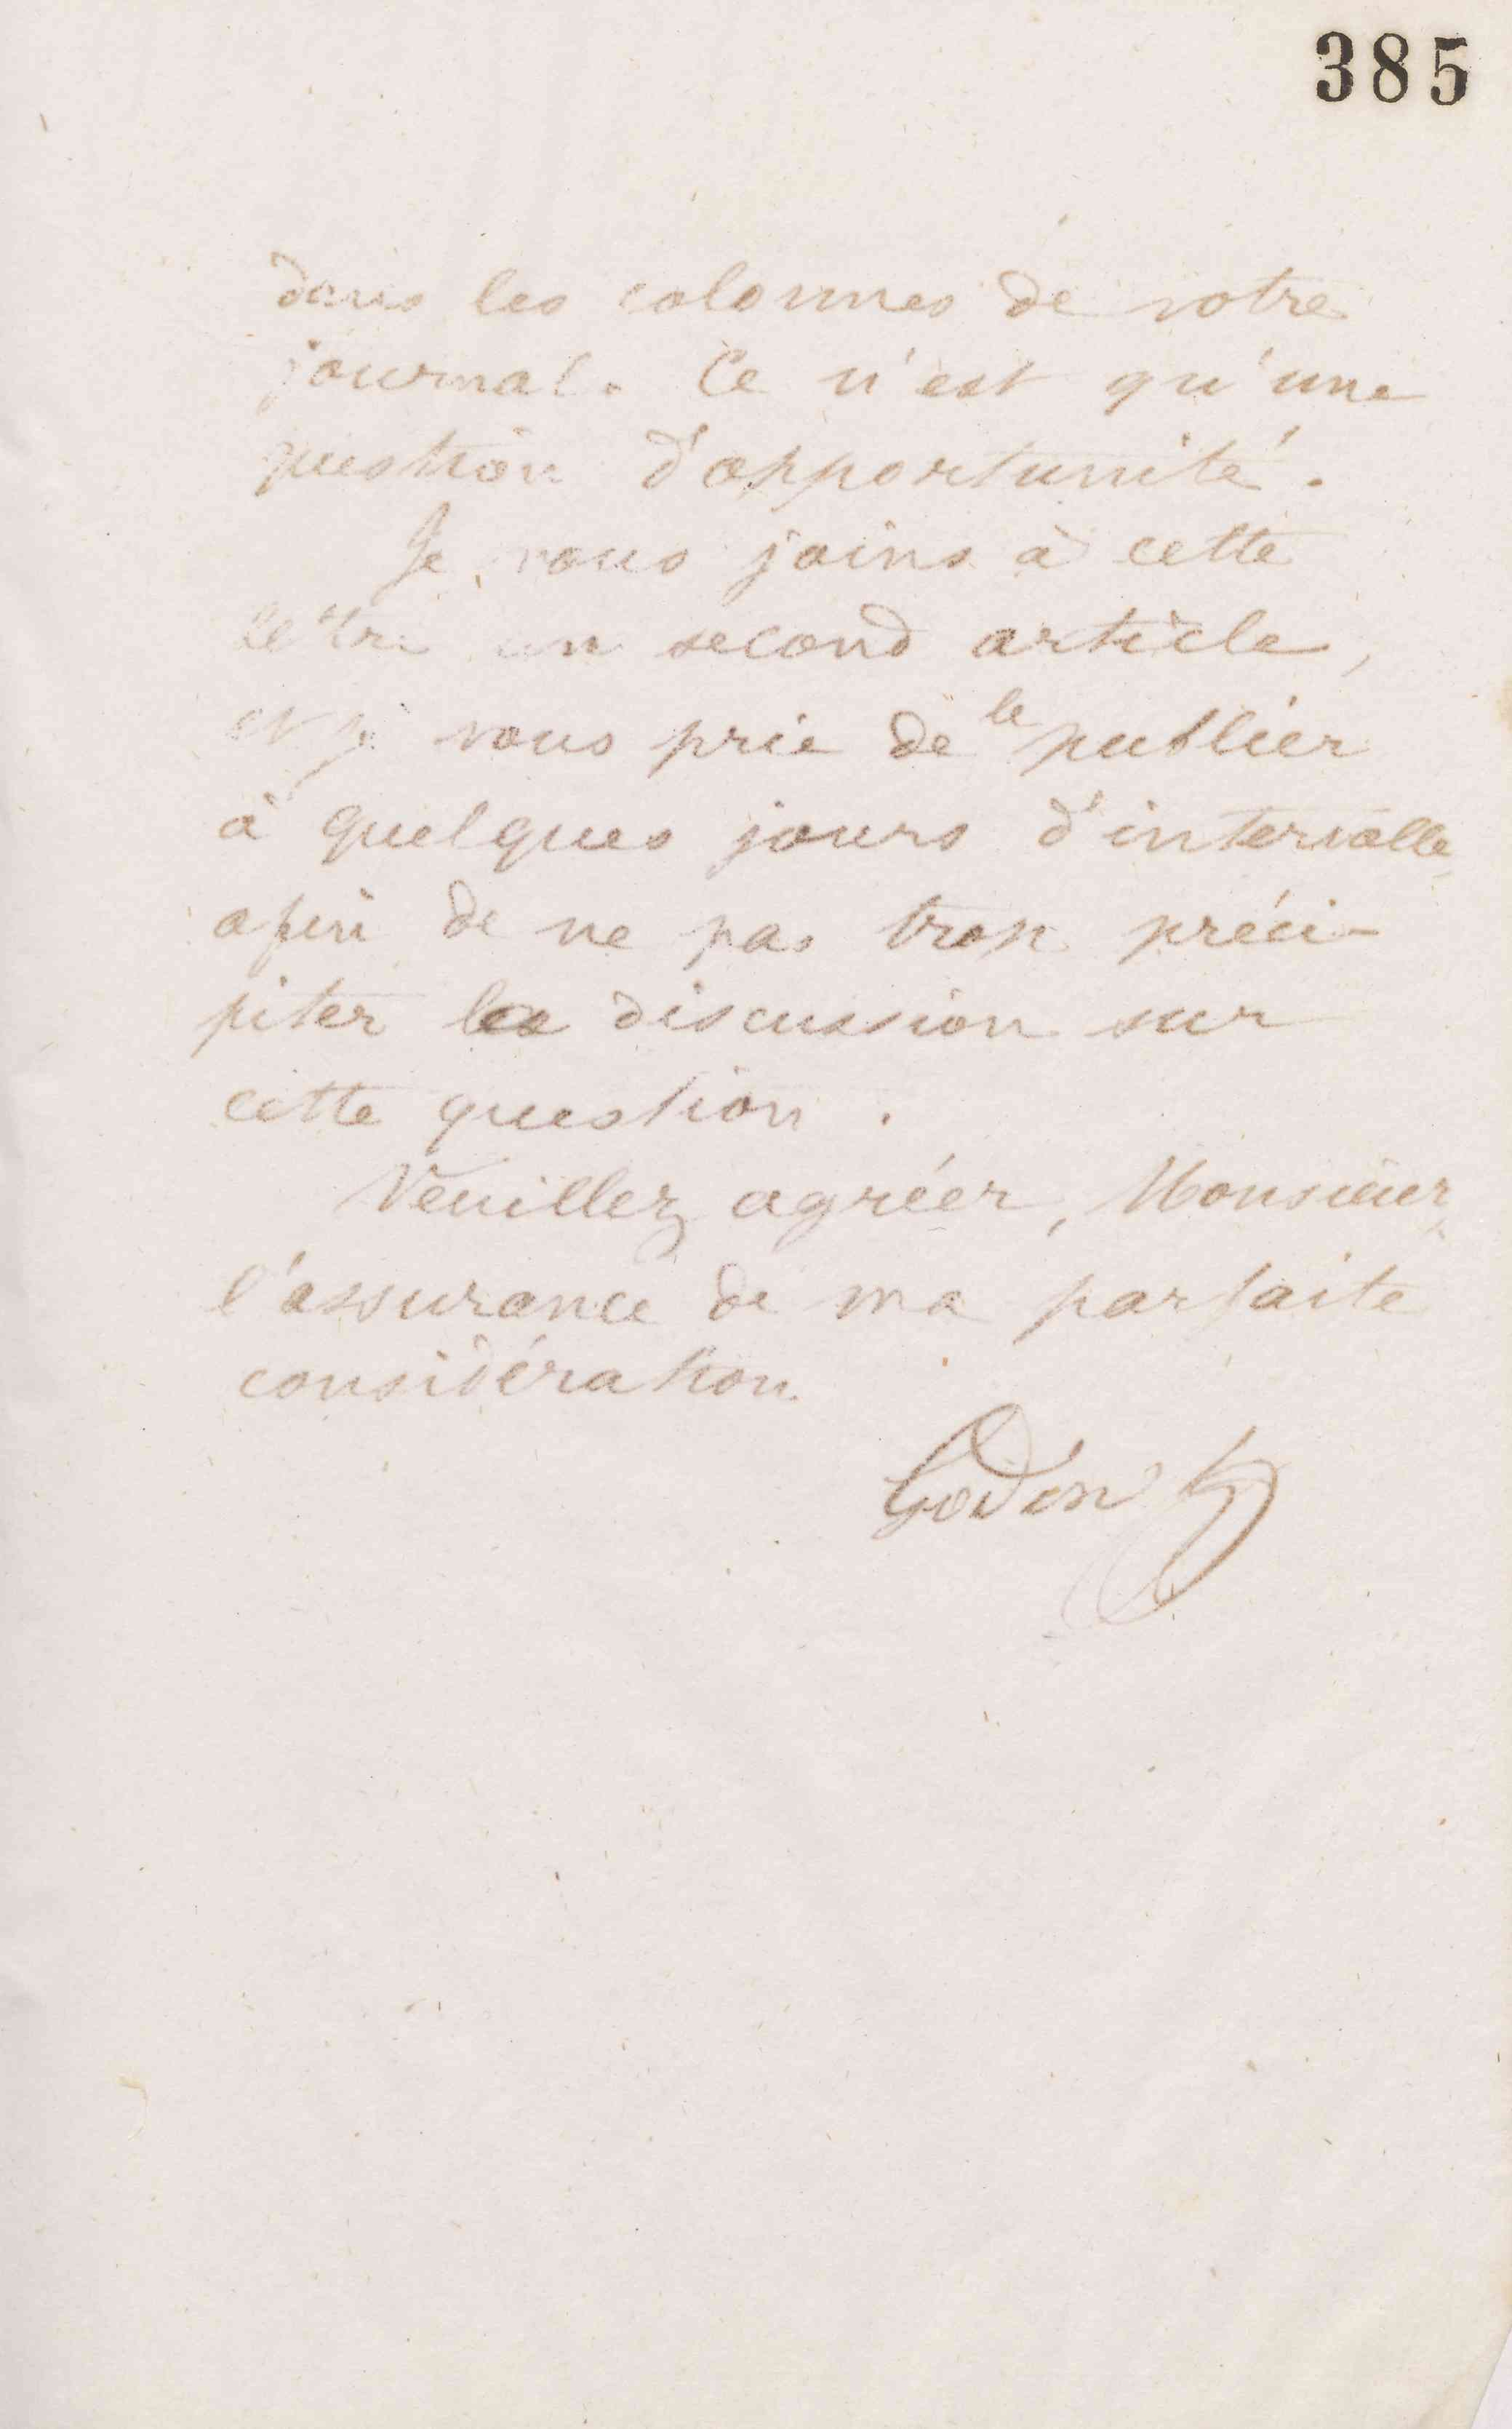 385
dans les colonnes de votre
journal. Ce n'est qu'une
question d'opportunité.
Je vous joins à cette
lettre un second article,
et je vous prie de le publier
à quelques jours d'intervalle
afin de ne pas trop préci-
piter la discussion sur
cette question.
Veuillez agréer, Monsieur,
l'assurance de ma parfaite
considération
Godin